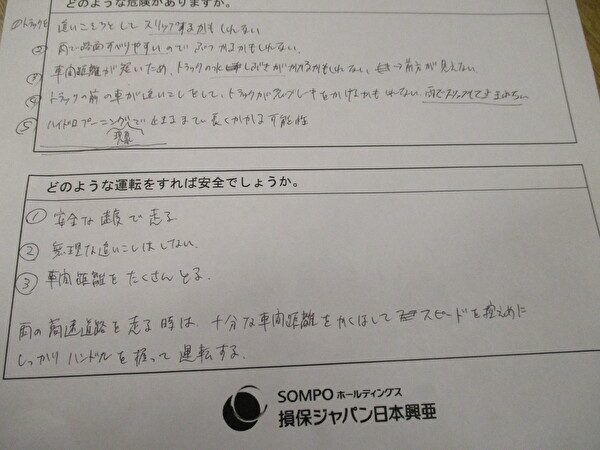 どのような危険がありますか。
①トラックを 追いこそうとして スリップするかもしれない
② 雨で路面すべりやすいので ぶつかるかもしれない.
③ 車間距離が短いため、トラックの水しぶきがかかるかもしれない, 前方が見えない
④ トラックの前の車が追いこしをして、トラックが急ブレーキをかけるかもしれない.
⑤ ハイドロプーニング で止まるまでに長くかかる可能性
現象
どのような運転をすれば安全でしょうか。
① 安全な速度で走る
② 無理な追いこしはしない.
③ 車間距離をたくさんとる.
雨の高速道路を走る時は、十分な車間距離をかくほして スピードを控えめに
しっかりハンドルを握って運転する.
SOMPO ホールディングス
損保ジャパン日本興亜